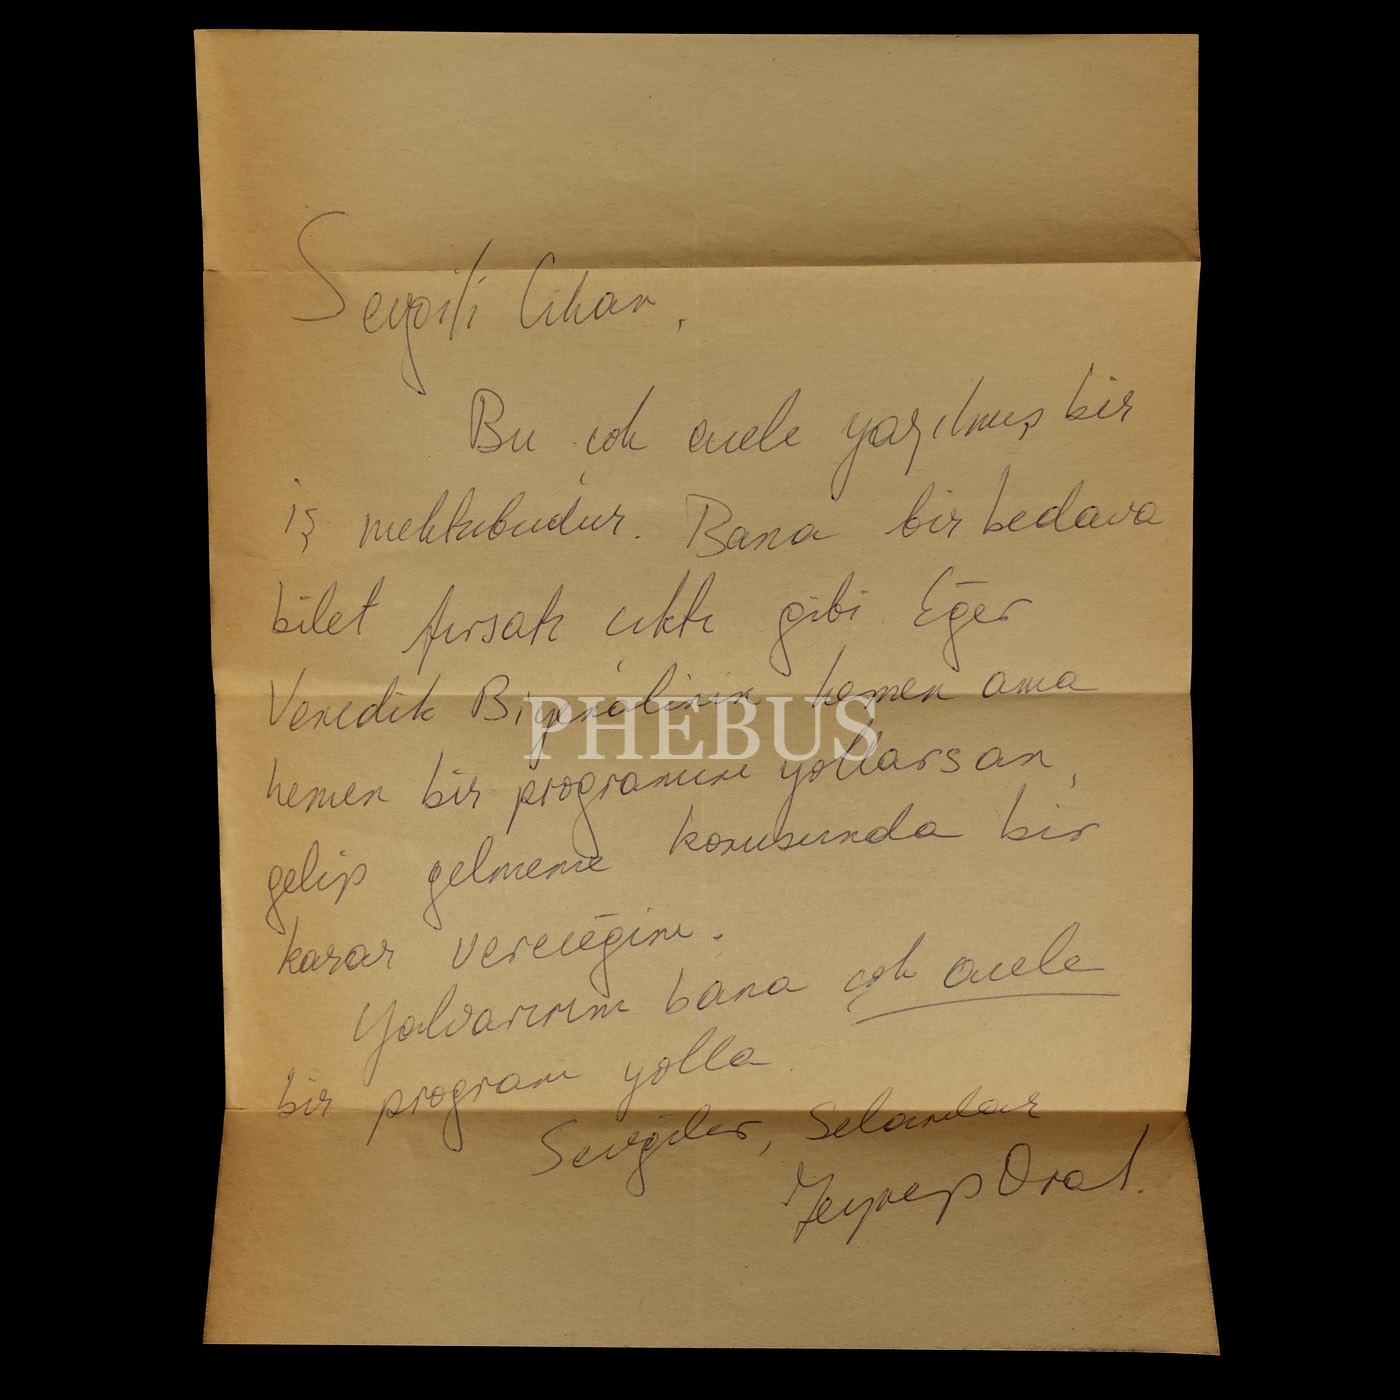 Sevgili Cihan,
Bu çok acele yazılmış bir
iş mektubudur. Bana bir bedava
bilet fırsatı çıktı gibi. Eğer
Venedik Biyenalinin hemen ama
PHEBUS
hemen bir programını yollarsan,
gelip gelmeme konusunda bir
karar vereceğim.
Yalvarırım bana çok acele
bir program yolla.
Sevgiler, Selamlar
Zeynep Oral.